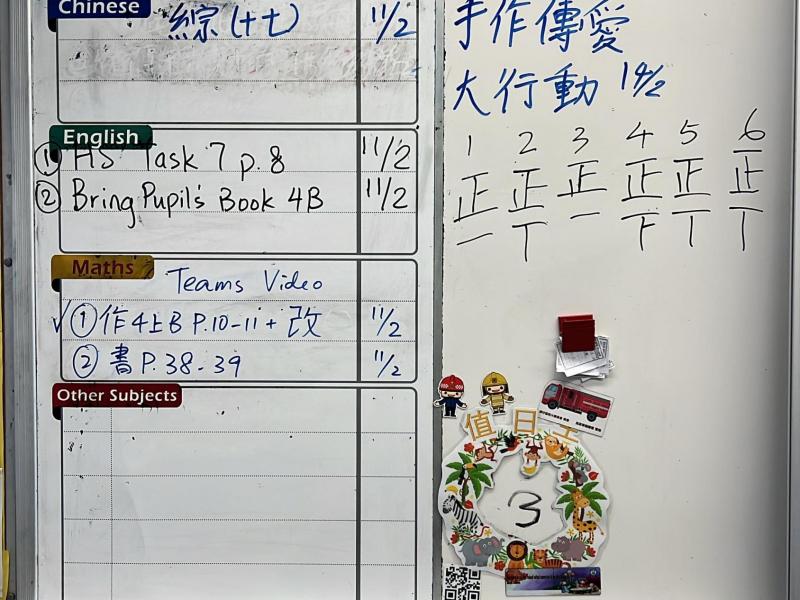 Chinese
綜(十七) 11/2
English
① HS Task 7 p. 8 11/2
② Bring Pupil's Book 4B 11/2
Maths
Teams Video
✓ ① 作4上B P.10-11 + 改 11/2
② 書 P.38-39 11/2
Other Subjects
手作傳愛
大行動 14/2
1 2 3 4 5 6
正 正 正 正 正 正
一 丅 一 下 丅 丅
值日生
3